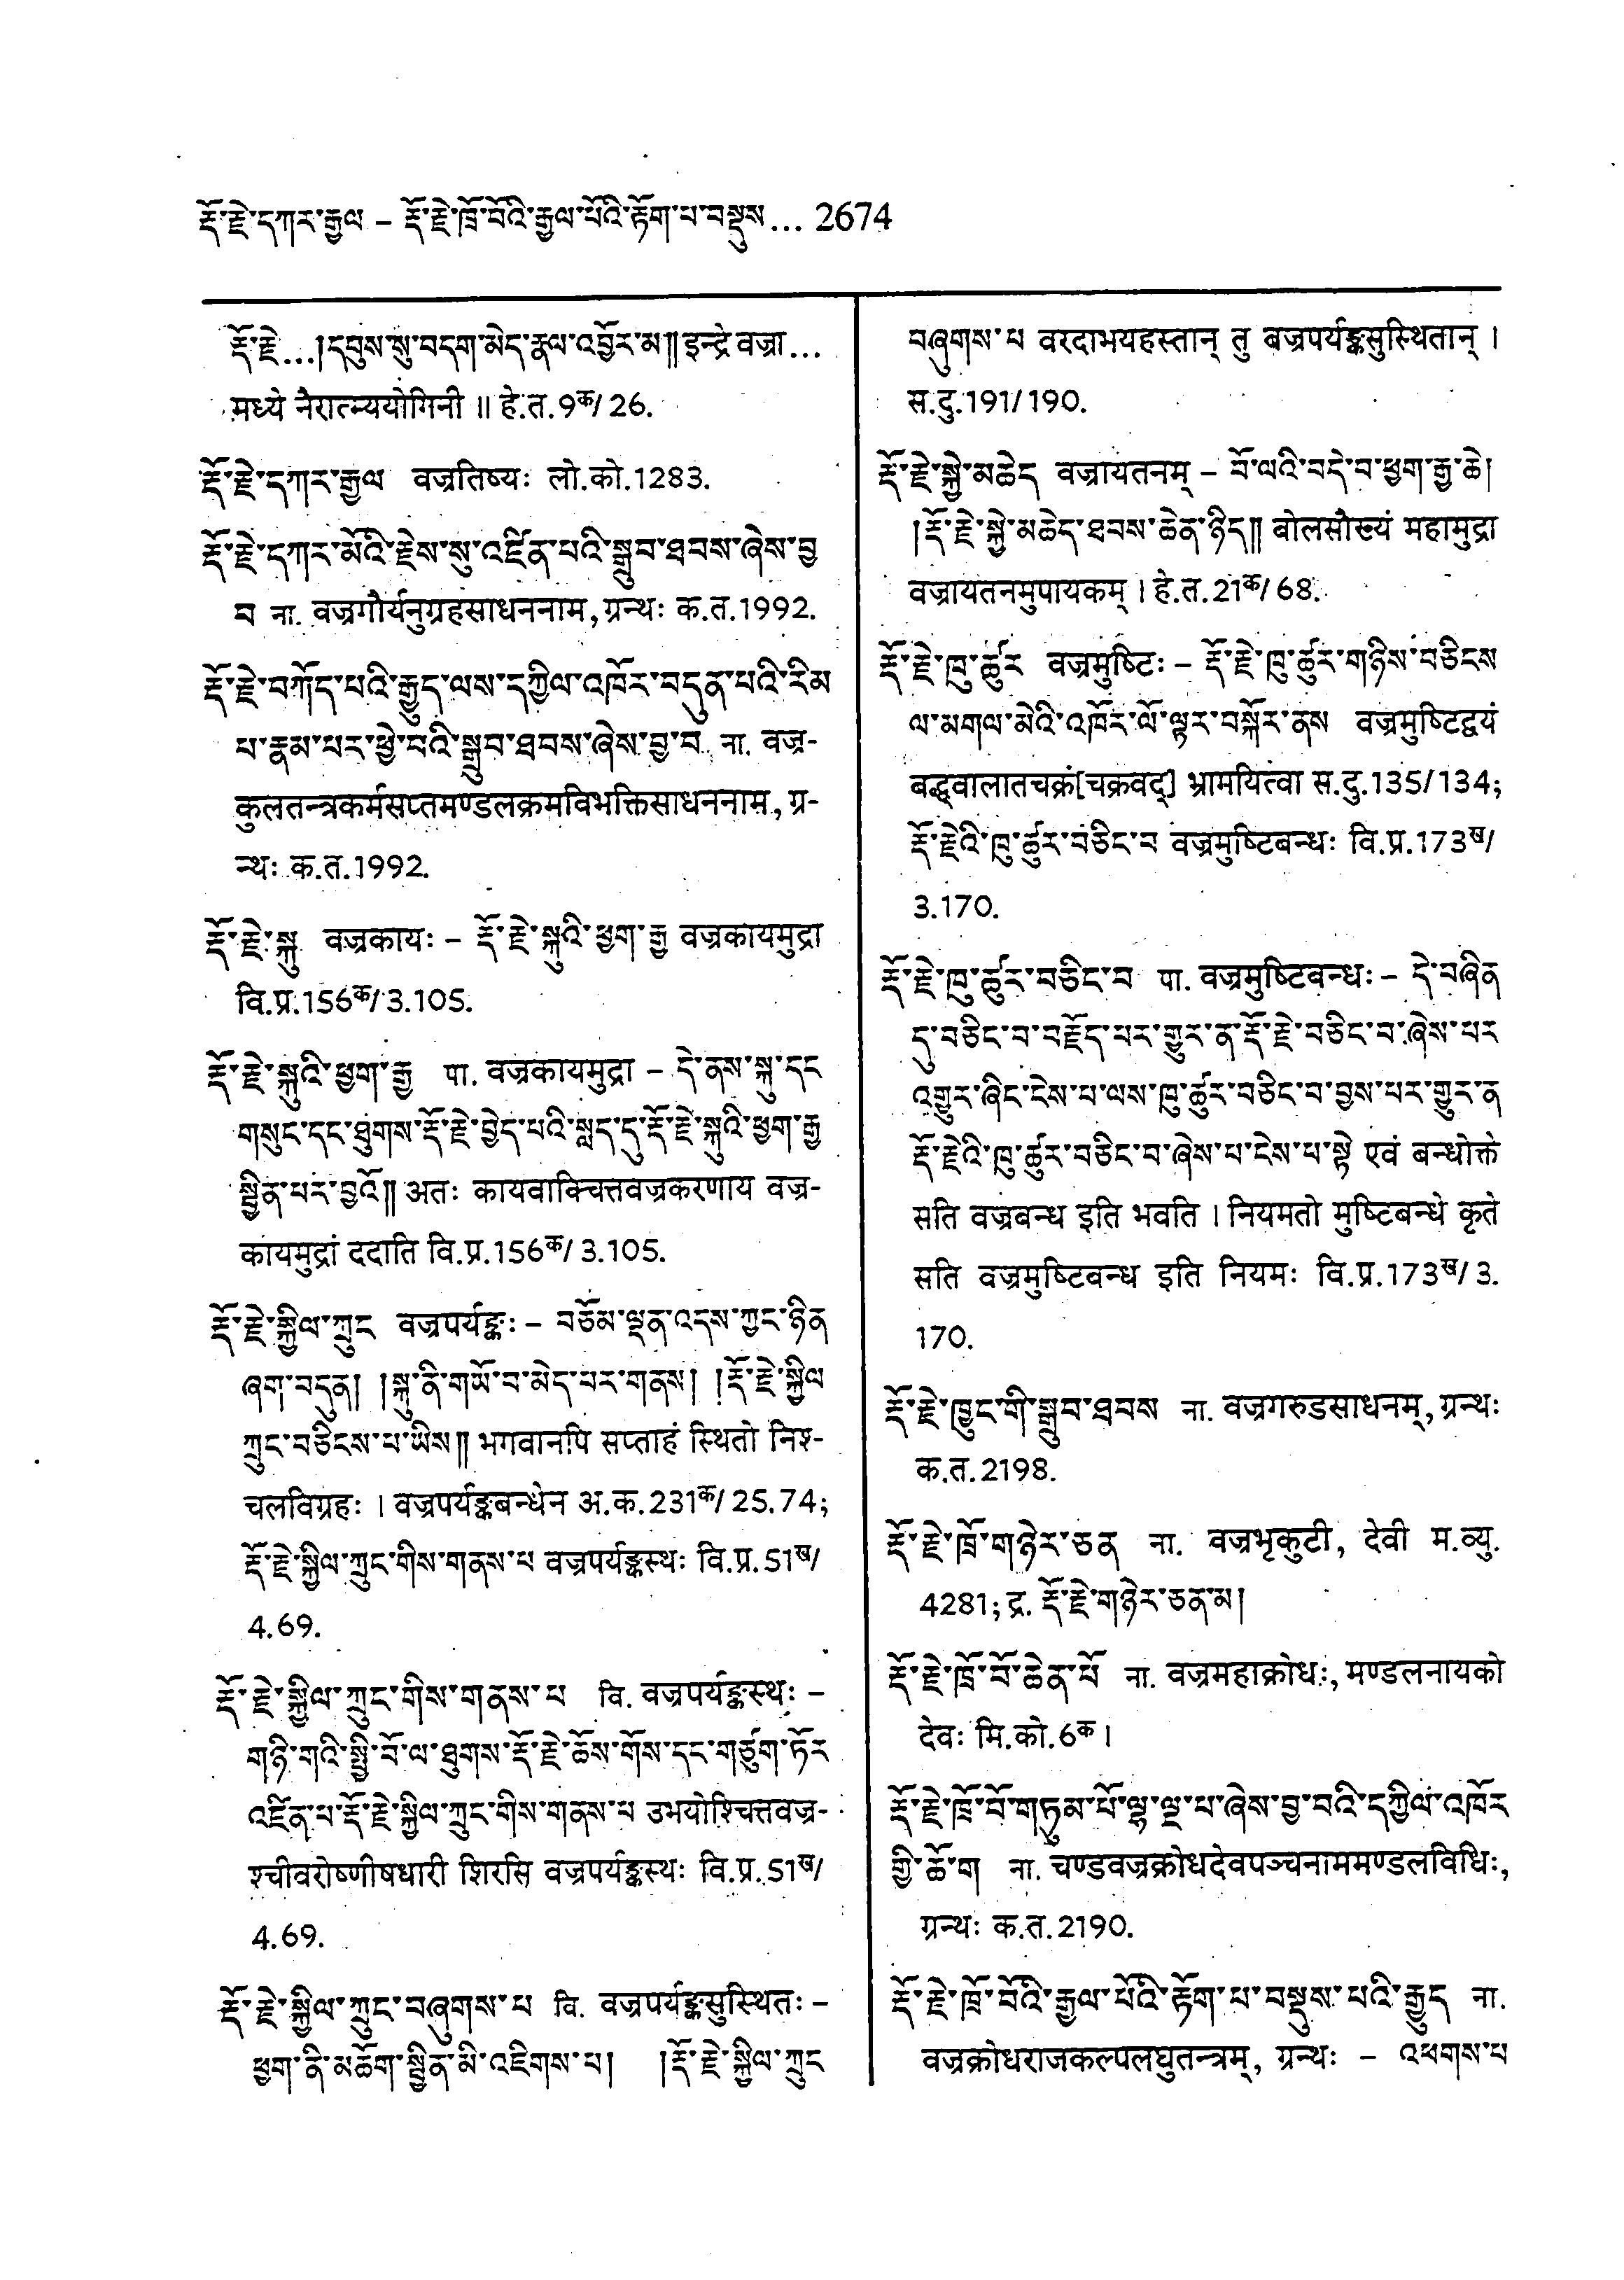 རྡོ་རྗེ་དཀར་རྒྱལ – རྡོ་རྗེ་ཁྲོ་བོའི་རྒྱལ་པོའི་རྟོག་པ་བསྡུས... 2674
རྡོ་རྗེ...།དབུས་སུ་བདག་མེད་རྣལ་འབྱོར་མ།། इन्द्रे वज्रा...
मध्ये नैरात्म्ययोगिनी ॥ हे.त.9क/26.
རྡོ་རྗེ་དཀར་རྒྱལ वज्रतिष्यः लो.को.1283.
རྡོ་རྗེ་དཀར་མོའི་རྗེས་སུ་འཛིན་པའི་སྒྲུབ་ཐབས་ཞེས་བྱ
བ ना. वज्रगौर्यनुग्रहसाधननाम, ग्रन्थः क.त.1992.
རྡོ་རྗེ་བཀོད་པའི་རྒྱུད་ལས་དཀྱིལ་འཁོར་བདུན་པའི་རིམ
པ་རྣམ་པར་ཕྱེ་བའི་སྒྲུབ་ཐབས་ཞེས་བྱ་བ ना. वज्र-
कुलतन्त्रकर्मसप्तमण्डलक्रमविभक्तिसाधननाम, ग्र-
न्थः क.त.1992.
རྡོ་རྗེ་སྐུ वज्रकायः – རྡོ་རྗེ་སྐུའི་ཕྱག་རྒྱ वज्रकायमुद्रा
वि.प्र.156क/3.105.
རྡོ་རྗེ་སྐུའི་ཕྱག་རྒྱ पा. वज्रकायमुद्रा – དེ་ནས་སྐུ་དང
གསུང་དང་ཐུགས་རྡོ་རྗེ་བྱེད་པའི་སླད་དུ་རྡོ་རྗེ་སྐུའི་ཕྱག་རྒྱ
སྦྱིན་པར་བྱའོ།། अतः कायवाक्चित्तवज्रकरणाय वज्र-
कायमुद्रां ददाति वि.प्र.156क/3.105.
རྡོ་རྗེ་སྐྱིལ་ཀྲུང वज्रपर्यङ्कः – བཅོམ་ལྡན་འདས་ཀྱང་ཉིན
ཞག་བདུན། །སྐུ་ནི་གཡོ་བ་མེད་པར་གནས། །རྡོ་རྗེ་སྐྱིལ
ཀྲུང་བཅིངས་པ་ཡིས།། भगवानपि सप्ताहं स्थितो निश्-
चलविग्रहः । वज्रपर्यङ्कबन्धेन अ.क.231क/25.74;
རྡོ་རྗེ་སྐྱིལ་ཀྲུང་གིས་གནས་པ वज्रपर्यङ्कस्थः वि.प्र.51ख/
4.69.
རྡོ་རྗེ་སྐྱིལ་ཀྲུང་གིས་གནས་པ वि. वज्रपर्यङ्कस्थः –
གཉི་གའི་སྤྱི་བོ་ལ་ཐུགས་རྡོ་རྗེ་ཆོས་གོས་དང་གཙུག་ཏོར
འཛིན་པ་རྡོ་རྗེ་སྐྱིལ་ཀྲུང་གིས་གནས་པ उभयोश्चित्तवज्र-
श्चीवरोष्णीषधारी शिरसि वज्रपर्यङ्कस्थः वि.प्र.51ख/
4.69.
རྡོ་རྗེ་སྐྱིལ་ཀྲུང་བཞུགས་པ वि. वज्रपर्यङ्कसुस्थितः –
ཕྱག་ནི་མཆོག་སྦྱིན་མི་འཇིགས་པ། །རྡོ་རྗེ་སྐྱིལ་ཀྲུང
བཞུགས་པ वरदाभयहस्तान् तु बज्रपर्यङ्कसुस्थितान् ।
स.दु.191/190.
རྡོ་རྗེ་སྐྱེ་མཆེད वज्रायतनम् – བོ་ལའི་བདེ་བ་ཕྱག་རྒྱ་ཆེ།
།རྡོ་རྗེ་སྐྱེ་མཆེད་ཐབས་ཆེན་ཉིད།། बोलसौख्यं महामुद्रा
वज्रायतनमुपायकम् । हे.त.21क/68.
རྡོ་རྗེ་ཁུ་ཚུར वज्रमुष्टिः – རྡོ་རྗེ་ཁུ་ཚུར་གཉིས་བཅིངས
ལ་མགལ་མེའི་འཁོར་ལོ་ལྟར་བསྐོར་ནས वज्रमुष्टिद्वयं
बद्ध्वालातचक्रं[चक्रवद्] भ्रामयित्वा स.दु.135/134;
རྡོ་རྗེའི་ཁུ་ཚུར་བཅིང་བ वज्रमुष्टिबन्धः वि.प्र.173ख/
3.170.
རྡོ་རྗེ་ཁུ་ཚུར་བཅིང་བ पा. वज्रमुष्टिबन्धः – དེ་བཞིན
དུ་བཅིང་བ་བརྗོད་པར་གྱུར་ན་རྡོ་རྗེ་བཅིང་བ་ཞེས་པར
འགྱུར་ཞིང་ངེས་པ་ལས་ཁུ་ཚུར་བཅིང་བ་བྱས་པར་གྱུར་ན
རྡོ་རྗེའི་ཁུ་ཚུར་བཅིང་བ་ཞེས་པ་ངེས་པ་སྟེ एवं बन्धोक्ते
सति वज्रबन्ध इति भवति । नियमतो मुष्टिबन्धे कृते
सति वज्रमुष्टिबन्ध इति नियमः वि.प्र.173ख/3.
170.
རྡོ་རྗེ་ཁྱུང་གི་སྒྲུབ་ཐབས ना. वज्रगरुडसाधनम्, ग्रन्थः
क.त.2198.
རྡོ་རྗེ་ཁྲོ་གཉེར་ཅན ना. वज्रभृकुटी, देवी म.व्यु.
4281; द्र. རྡོ་རྗེ་གཉེར་ཅན་མ།
རྡོ་རྗེ་ཁྲོ་བོ་ཆེན་པོ ना. वज्रमहाक्रोधः, मण्डलनायको
देवः मि.को.6क ।
རྡོ་རྗེ་ཁྲོ་བོ་གཏུམ་པོ་ལྷ་ལྔ་པ་ཞེས་བྱ་བའི་དཀྱིལ་འཁོར
གྱི་ཆོ་ག ना. चण्डवज्रक्रोधदेवपञ्चनाममण्डलविधिः,
ग्रन्थः क.त.2190.
རྡོ་རྗེ་ཁྲོ་བོའི་རྒྱལ་པོའི་རྟོག་པ་བསྡུས་པའི་རྒྱུད ना.
वज्रक्रोधराजकल्पलघुतन्त्रम्, ग्रन्थः – འཕགས་པ